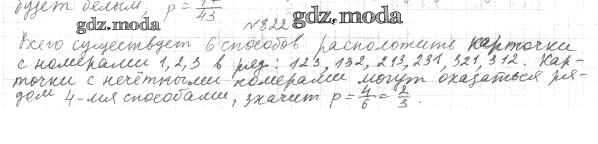 будет белым, p = 12/43
gdz.moda
№ 822 gdz.moda
Всего существует 6 способов расположить карточки
с номерами 1, 2, 3 в ряд: 123, 132, 213, 231, 321, 312. Кар-
точки с нечётными номерами могут оказаться ря-
дом 4-мя способами, значит p = 4/6 = 2/3.